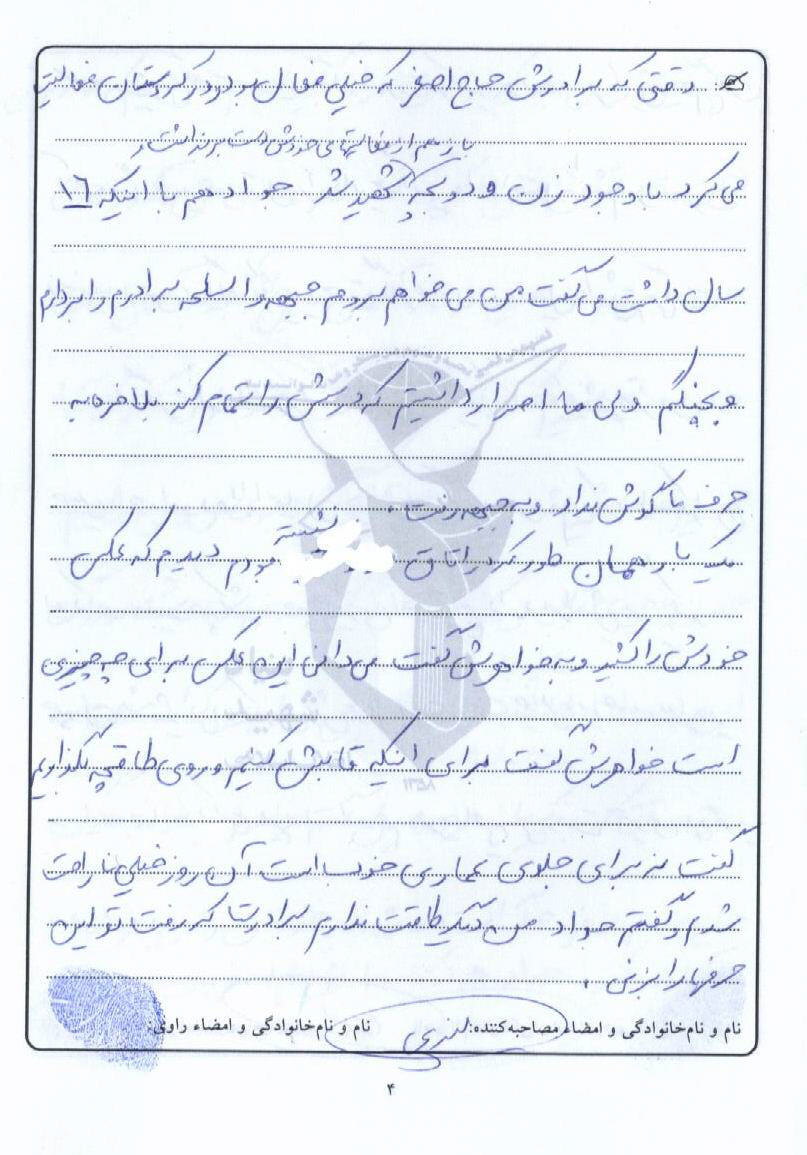 وقتی که برادرش حاج اصغر که خیلی فعال بود و در کردستان فعالیت
باز هم از فعالیتهای خودش دست برنداشت و
می کرد با وجود زن و دو بچه شهید شد جواد هم با اینکه ۱۶
سال داشت می گفت من می خواهم بروم جبهه و اسلحه برادرم را بردارم
و بجنگم ولی ما اصرار داشتیم که درسش را تمام کند بلاخره به
حرف ما گوش نداد و به جبهه رفت.
یک بار همان طور که در اتاق نشسته بودم دیدم که عکس
خودش را کشید و به خواهرش گفت می دانی این عکس برای چه چیزی
است خواهرش گفت برای اینکه قابش کنیم و روی طاقچه بگذاریم
گفت نه برای جلوی عماری خوب است آن روز خیلی ناراحت
شدم و گفتم جواد من دیگر طاقت ندارم برادرت که رفت تو این
حرفها را بزنی.
نام و نام‌خانوادگی و امضاء مصاحبه‌کننده: نام و نام‌خانوادگی و امضاء راوی:
۴